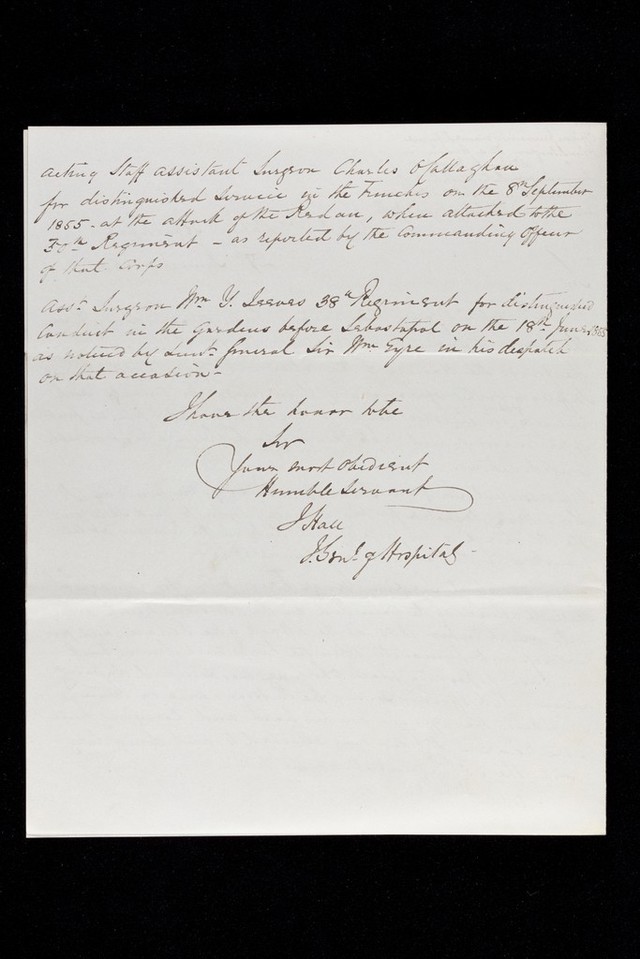 Acting Staff assistant Surgeon Charles O'Callaghan
for distinguished Service in the Trenches on the 8th September
1855 - at the attack of the Redan, when attached to the
Regiment - as reported by the Commanding Officer
of that Corps
Asst. Surgeon Wm Y. Jeeves 38th Regiment for distinguished
Conduct in the Gardens before Sebastapol on the 18th June, 1855
as noticed by General Sir Wm Eyre in his despatch
on that occasion -
I have the honor to be
Sir
Your most obedient
Humble Servant
J Hall
I. Genl. of Hospitals -